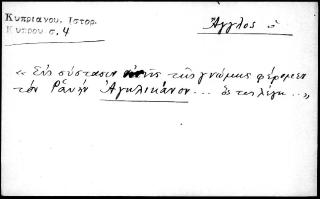 Κυπριανου. Ιστορ.
Κυπρου σ. 4
Ἄγγλος ὁ
« Εἰς σύστασιν τῆς γνώμης φέρομεν
τὸν Ἀγκλικάνον... ὃς τις λέγει... »